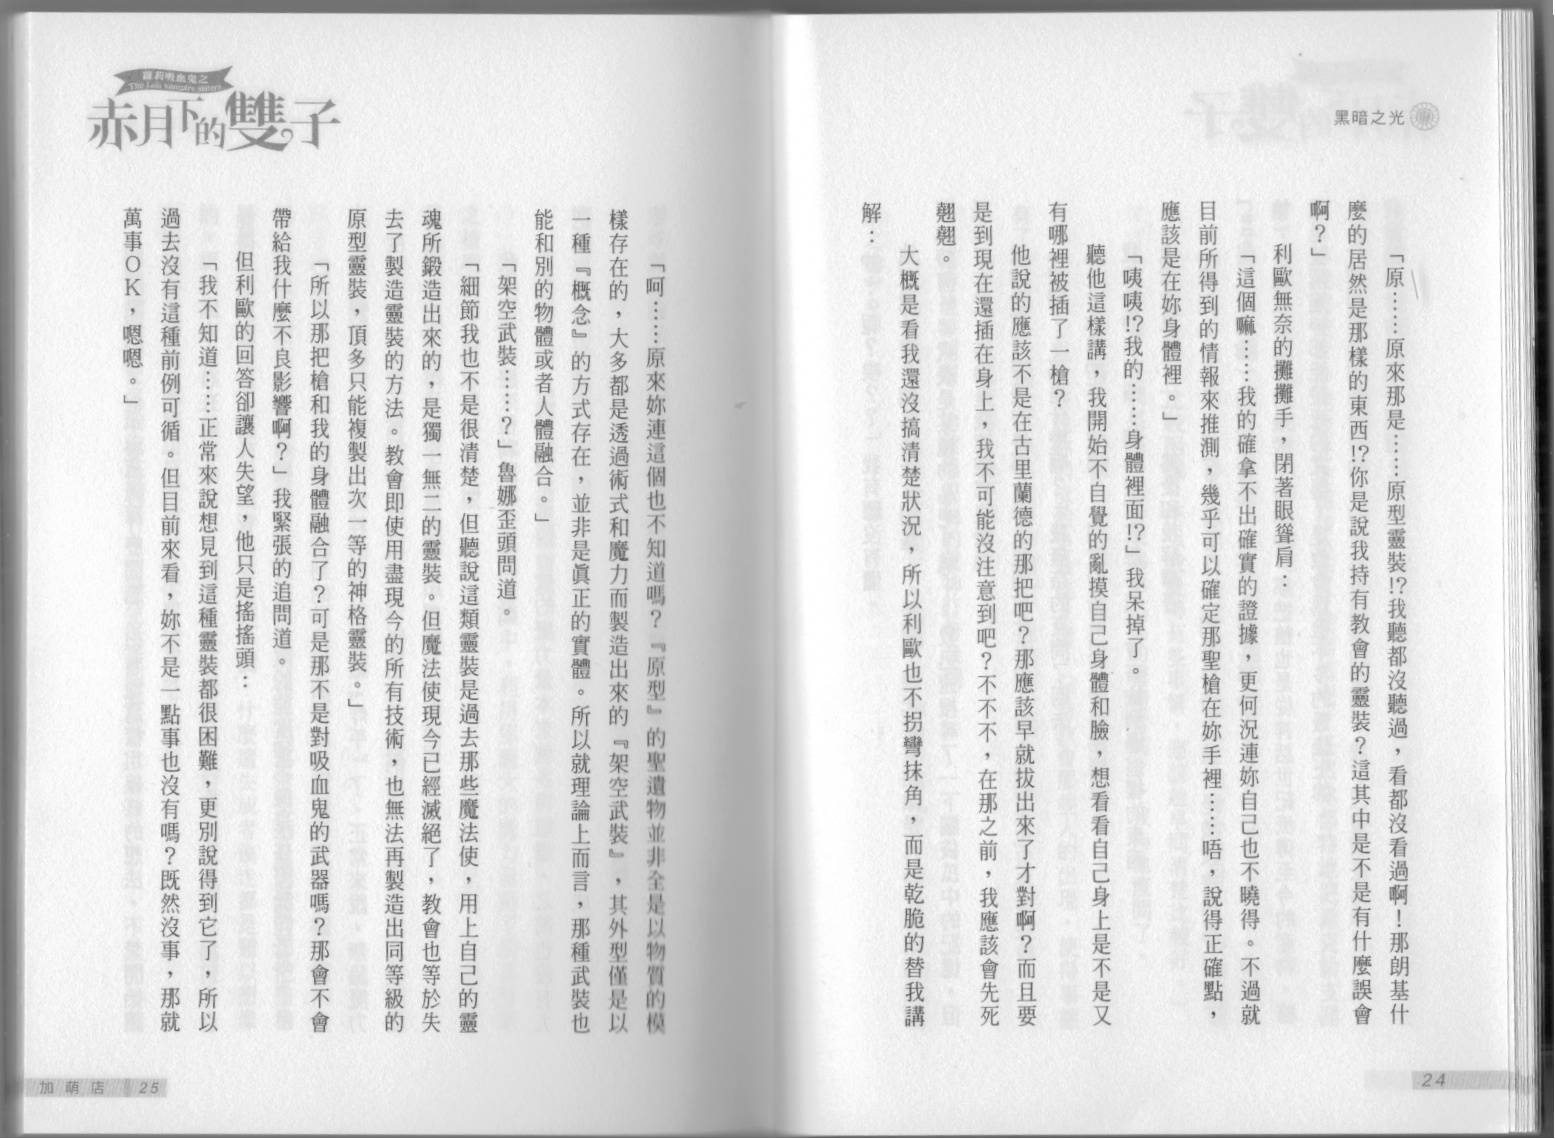 黑暗之光
「原……原來那是……原型靈裝!?我聽都沒聽過，看都沒看過啊！那朗基什
麼的居然是那樣的東西!?你是說我持有教會的靈裝？這其中是不是有什麼誤會
啊？」
利歐無奈的攤攤手，閉著眼聳肩：
「這個嘛……我的確拿不出確實的證據，更何況連妳自己也不曉得。不過就
目前所得到的情報來推測，幾乎可以確定那聖槍在妳手裡……唔，說得正確點，
應該是在妳身體裡。」
「咦咦!?我的……身體裡面!?」我呆掉了。
聽他這樣講，我開始不自覺的亂摸自己身體和臉，想看看自己身上是不是又
有哪裡被插了一槍？
他說的應該不是在古里蘭德的那把吧？那應該早就拔出來了才對啊？而且要
是到現在還插在身上，我不可能沒注意到吧？不不不，在那之前，我應該會先死
翹翹。
大概是看我還沒搞清楚狀況，所以利歐也不拐彎抹角，而是乾脆的替我講
解：
24
蘿莉吸血鬼之
The Loli vampire sisters
赤月下的雙子
「呵……原來妳連這個也不知道嗎？『原型』的聖遺物並非全是以物質的模
樣存在的，大多都是透過術式和魔力而製造出來的『架空武裝』，其外型僅是以
一種『概念』的方式存在，並非是真正的實體。所以就理論上而言，那種武裝也
能和別的物體或者人體融合。」
「架空武裝……？」魯娜歪頭問道。
「細節我也不是很清楚，但聽說這類靈裝是過去那些魔法使，用上自己的靈
魂所鍛造出來的，是獨一無二的靈裝。但魔法使現今已經滅絕了，教會也等於失
去了製造靈裝的方法。教會即使用盡現今的所有技術，也無法再製造出同等級的
原型靈裝，頂多只能複製出次一等的神格靈裝。」
「所以那把槍和我的身體融合了？可是那不是對吸血鬼的武器嗎？那會不會
帶給我什麼不良影響啊？」我緊張的追問道。
但利歐的回答卻讓人失望，他只是搖搖頭：
「我不知道……正常來說想見到這種靈裝都很困難，更別說得到它了，所以
過去沒有這種前例可循。但目前來看，妳不是一點事也沒有嗎？既然沒事，那就
萬事OK，嗯嗯。」
加萌店 25